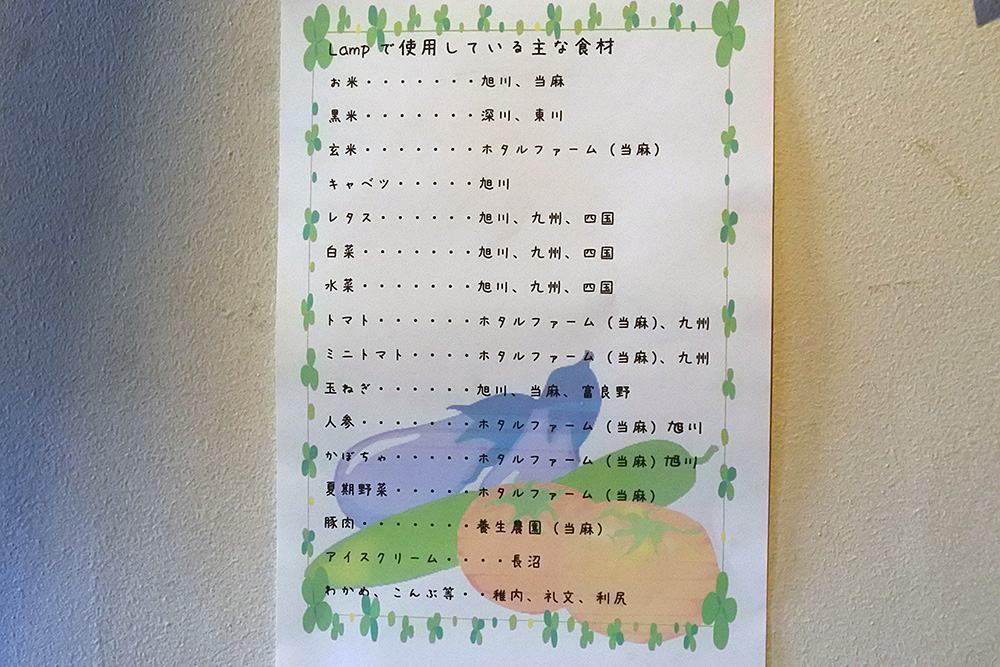 Lampで使用している主な食材
お米・・・・・・・旭川、当麻
黒米・・・・・・・深川、東川
玄米・・・・・・・ホタルファーム(当麻)
キャベツ・・・・・旭川
レタス・・・・・・旭川、九州、四国
白菜・・・・・・・旭川、九州、四国
水菜・・・・・・・旭川、九州、四国
トマト・・・・・・ホタルファーム(当麻)、九州
ミニトマト・・・・ホタルファーム(当麻)、九州
玉ねぎ・・・・・・旭川、当麻、富良野
人参・・・・・・・ホタルファーム(当麻)旭川
かぼちゃ・・・・・ホタルファーム(当麻)旭川
夏期野菜・・・・・ホタルファーム(当麻)
豚肉・・・・・・・養生農園(当麻)
アイスクリーム・・・・長沼
わかめ、こんぶ等・・稚内、礼文、利尻